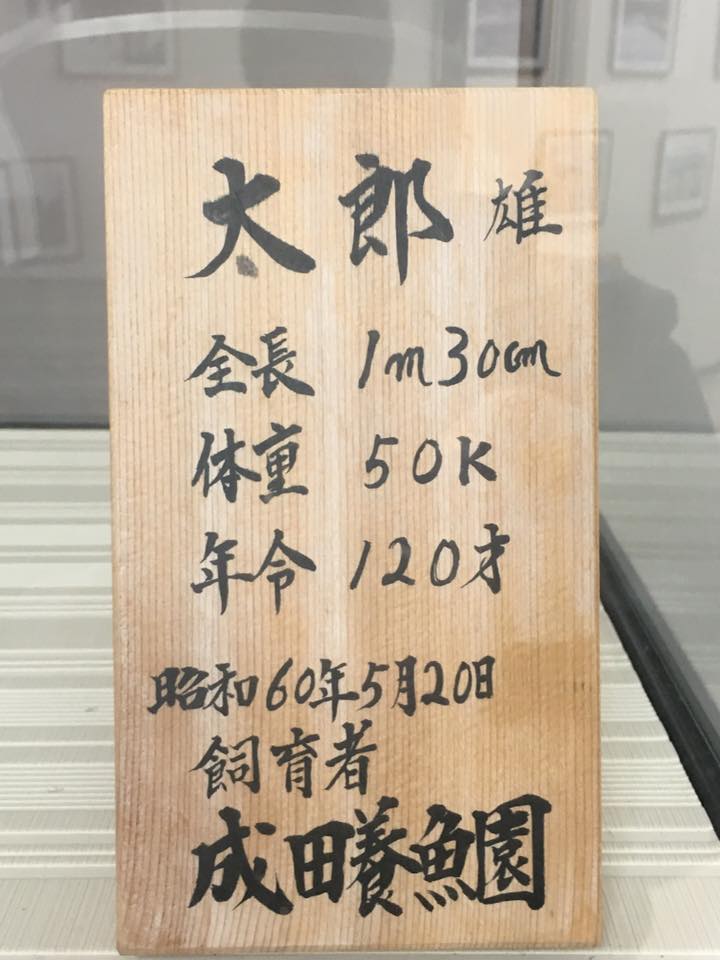 太郎 雄
全長 1m30cm
体重 50K
年令 120才
昭和60年5月20日
飼育者
成田養魚園